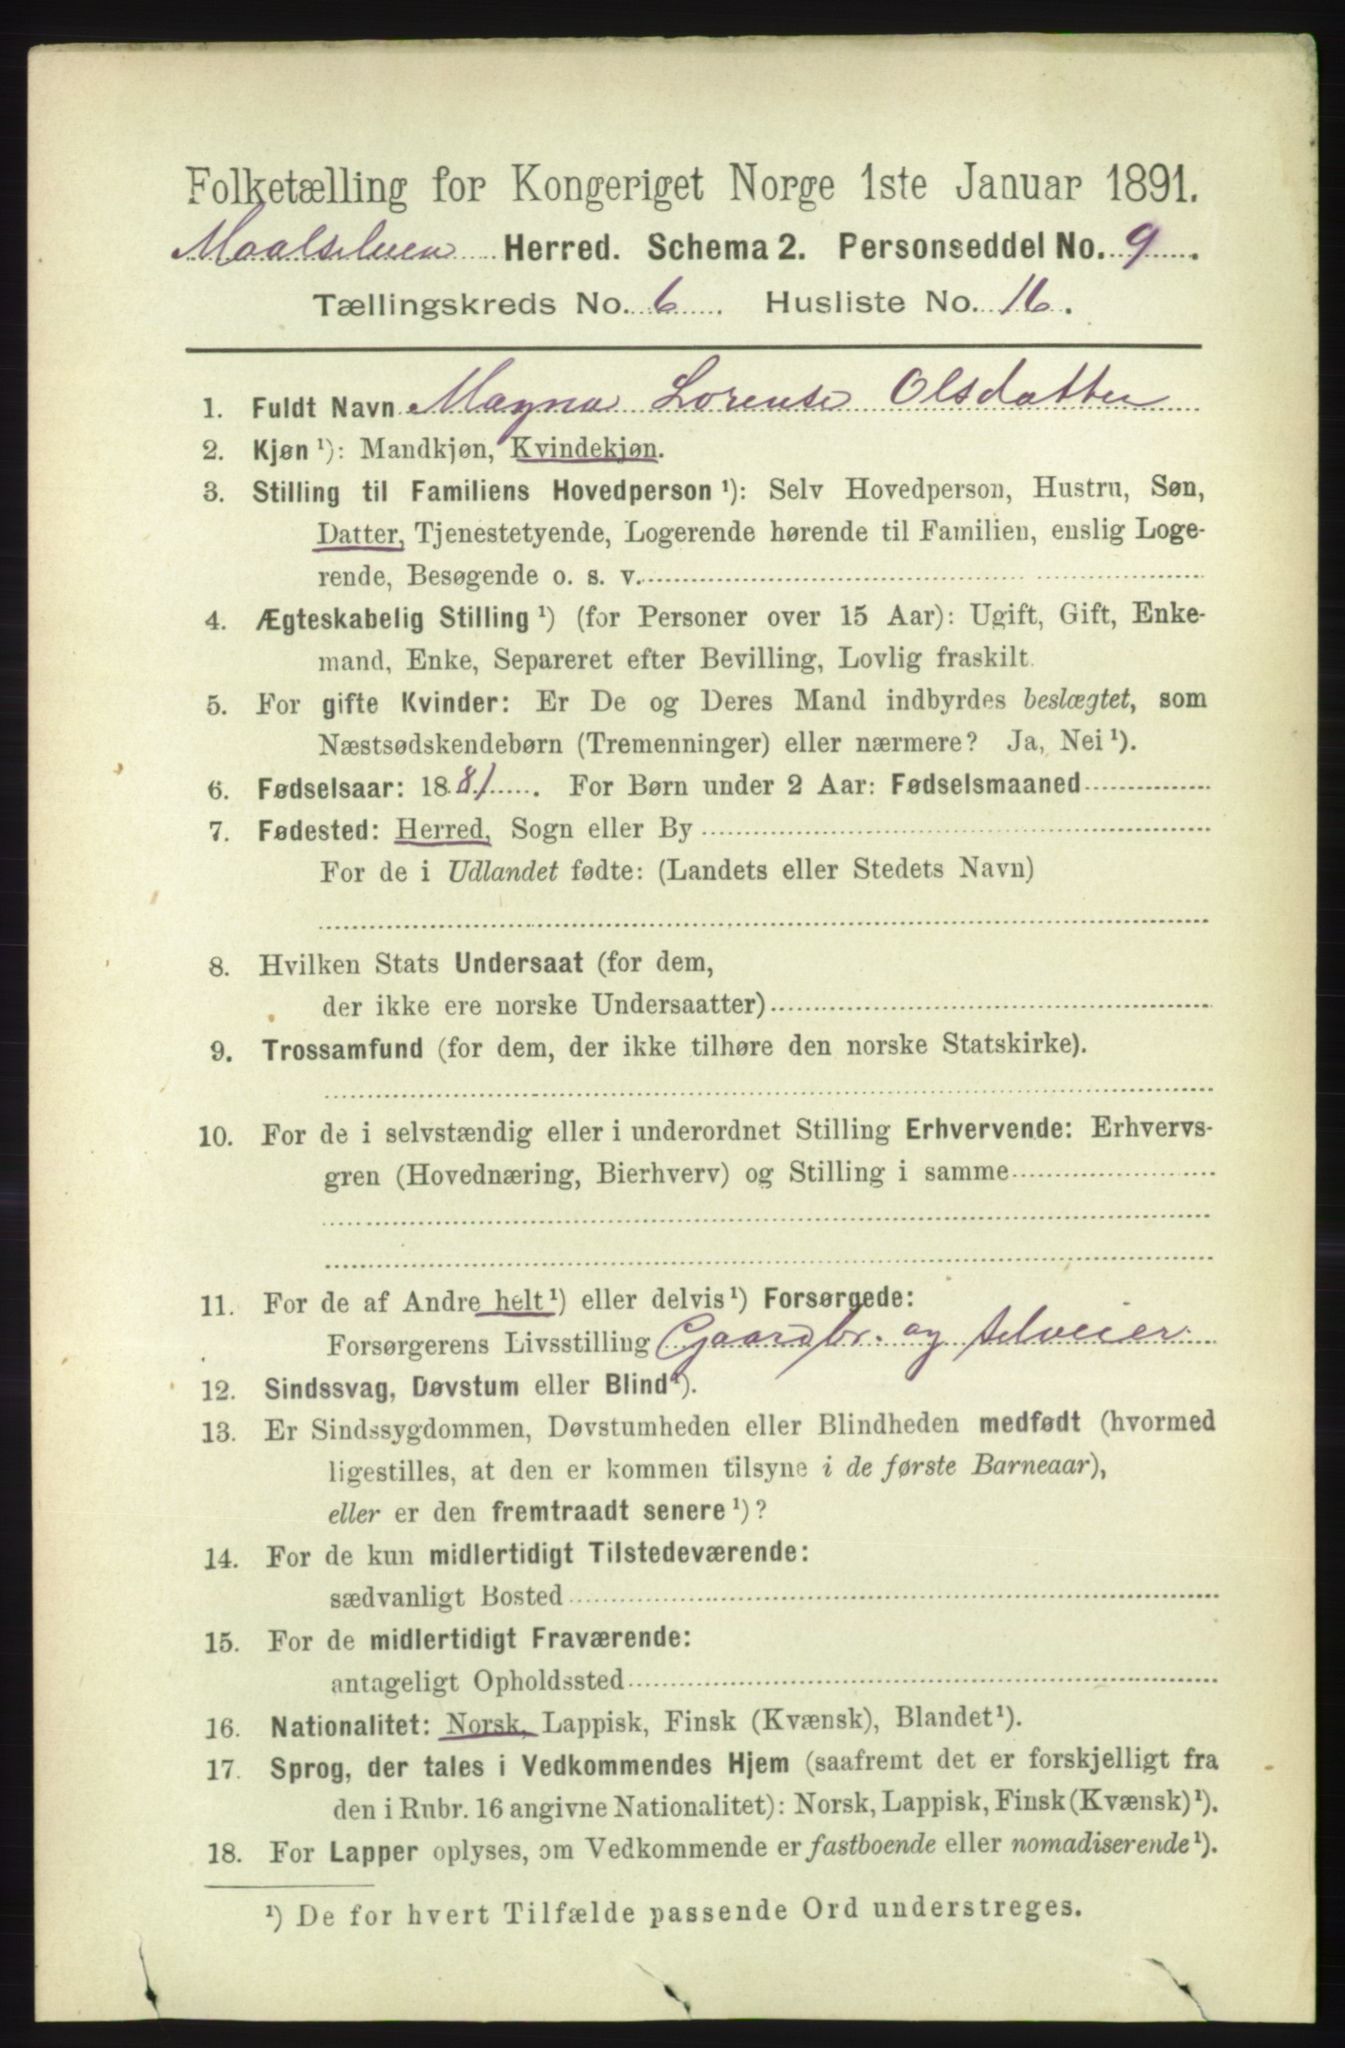 Folketælling for Kongeriget Norge 1ste Januar 1891.
Maalselven Herred. Schema 2. Personseddel No. 9.
Tællingskreds No. 6. Husliste No. 16.
1. Fuldt Navn Magna Lorense Olsdatter
2. Kjøn ¹): Mandkjøn, Kvindekjøn.
3. Stilling til Familiens Hovedperson ¹): Selv Hovedperson, Hustru, Søn,
Datter, Tjenestetyende, Logerende hørende til Familien, enslig Loge-
rende, Besøgende o. s. v.
4. Ægteskabelig Stilling ¹) (for Personer over 15 Aar): Ugift, Gift, Enke-
mand, Enke, Separeret efter Bevilling, Lovlig fraskilt.
5. For gifte Kvinder: Er De og Deres Mand indbyrdes beslægtet, som
Næstsødskendebørn (Tremenninger) eller nærmere? Ja, Nei ¹).
6. Fødselsaar: 1881. For Børn under 2 Aar: Fødselsmaaned
7. Fødested: Herred, Sogn eller By
For de i Udlandet fødte: (Landets eller Stedets Navn)
8. Hvilken Stats Undersaat (for dem,
der ikke ere norske Undersaatter)
9. Trossamfund (for dem, der ikke tilhøre den norske Statskirke).
10. For de i selvstændig eller i underordnet Stilling Erhvervende: Erhvervs-
gren (Hovednæring, Bierhverv) og Stilling i samme
11. For de af Andre helt ¹) eller delvis ¹) Forsørgede:
Forsørgerens Livsstilling Gaardbr. og selveier
12. Sindssvag, Døvstum eller Blind ¹).
13. Er Sindssygdommen, Døvstumheden eller Blindheden medfødt (hvormed
ligestilles, at den er kommen tilsyne i de første Barneaar),
eller er den fremtraadt senere ¹)?
14. For de kun midlertidigt Tilstedeværende:
sædvanligt Bosted
15. For de midlertidigt Fraværende:
antageligt Opholdssted
16. Nationalitet: Norsk, Lappisk, Finsk (Kvænsk), Blandet ¹).
17. Sprog, der tales i Vedkommendes Hjem (saafremt det er forskjelligt fra
den i Rubr. 16 angivne Nationalitet): Norsk, Lappisk, Finsk (Kvænsk) ¹).
18. For Lapper oplyses, om Vedkommende er fastboende eller nomadiserende ¹).
¹) De for hvert Tilfælde passende Ord understreges.